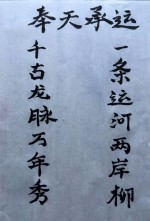 奉天承运
一条运河两岸柳
千古龙脉万年秀